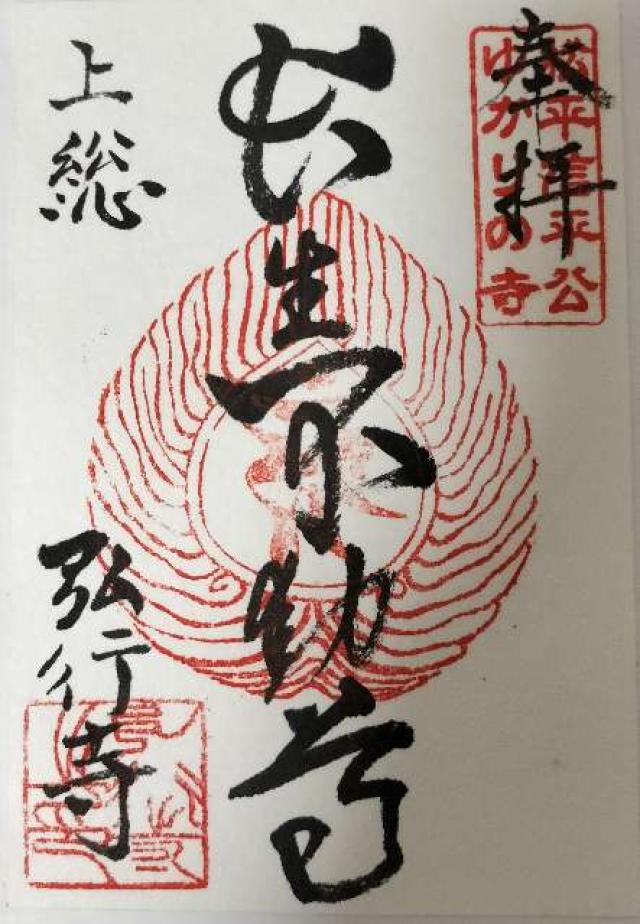 奉拝
松平信平公
ゆかりの寺
長生不動尊
上総
弘行寺